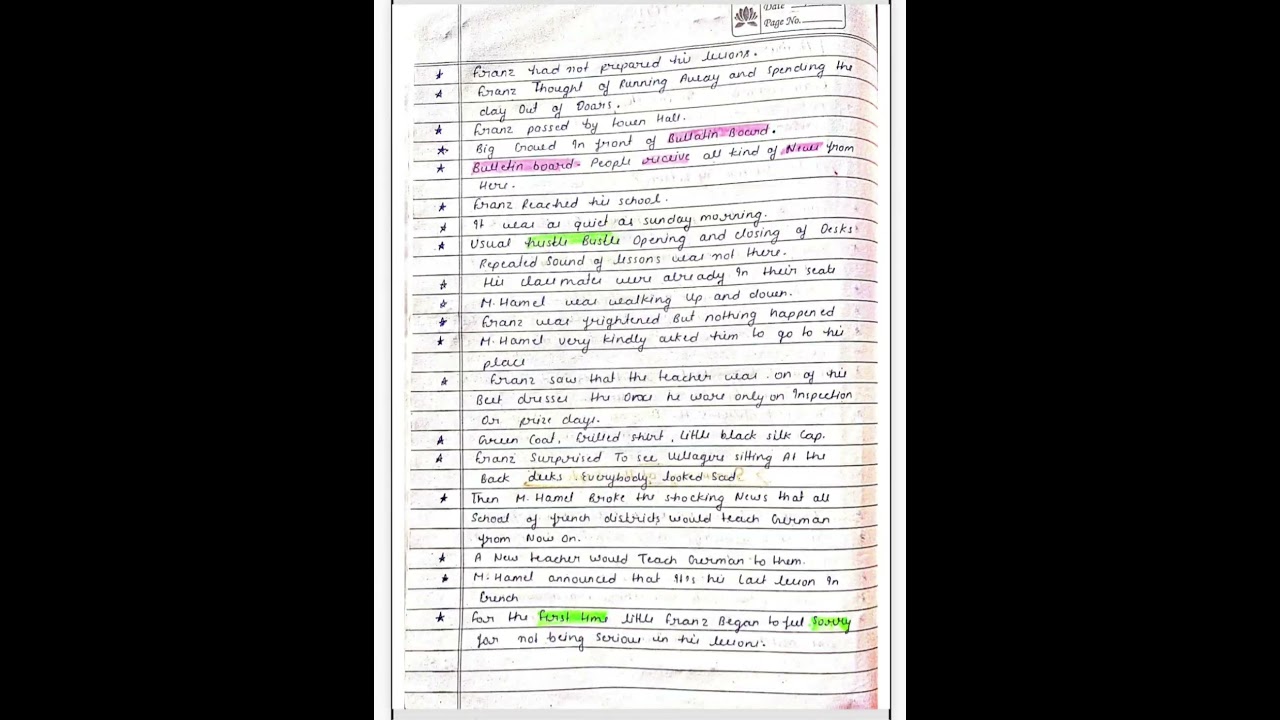 Date
Page No.
★ Franz had not prepared his lessons.
★ Franz Thought of Running Away and Spending the
day Out of Doars.
★ Franz passed by town Hall.
★ Big Crowd In front of Bullatin Board.
★ Bulletin board - People receive all kind of News from
Here.
★ Franz Reached his school.
★ It was as quiet as sunday morning.
★ Usual hustle Bustle Opening and closing of Desks
Repeated Sound of lessons was not there.
★ His classmates were already In their seats
★ M. Hamel was walking Up and down.
★ Franz was frightened But nothing happened
★ M. Hamel very kindly asked him to go to his
place
★ Franz saw that the teacher was on of his
Best dresses the Ones he ware only on Inspection
Or prize days.
★ Green Coat, frilled shirt, little black silk Cap.
★ Franz Surprised To see villagers sitting At the
Back desks Everybody looked Sad
★ Then M. Hamel Broke the shocking News that all
School of french districts would teach German
from Now On.
★ A New teacher would Teach German to them.
★ M. Hamel announced that It's his Last lesson In
french
★ For the first time little Franz Began to feel Sorry
for not being Serious in his lessons.